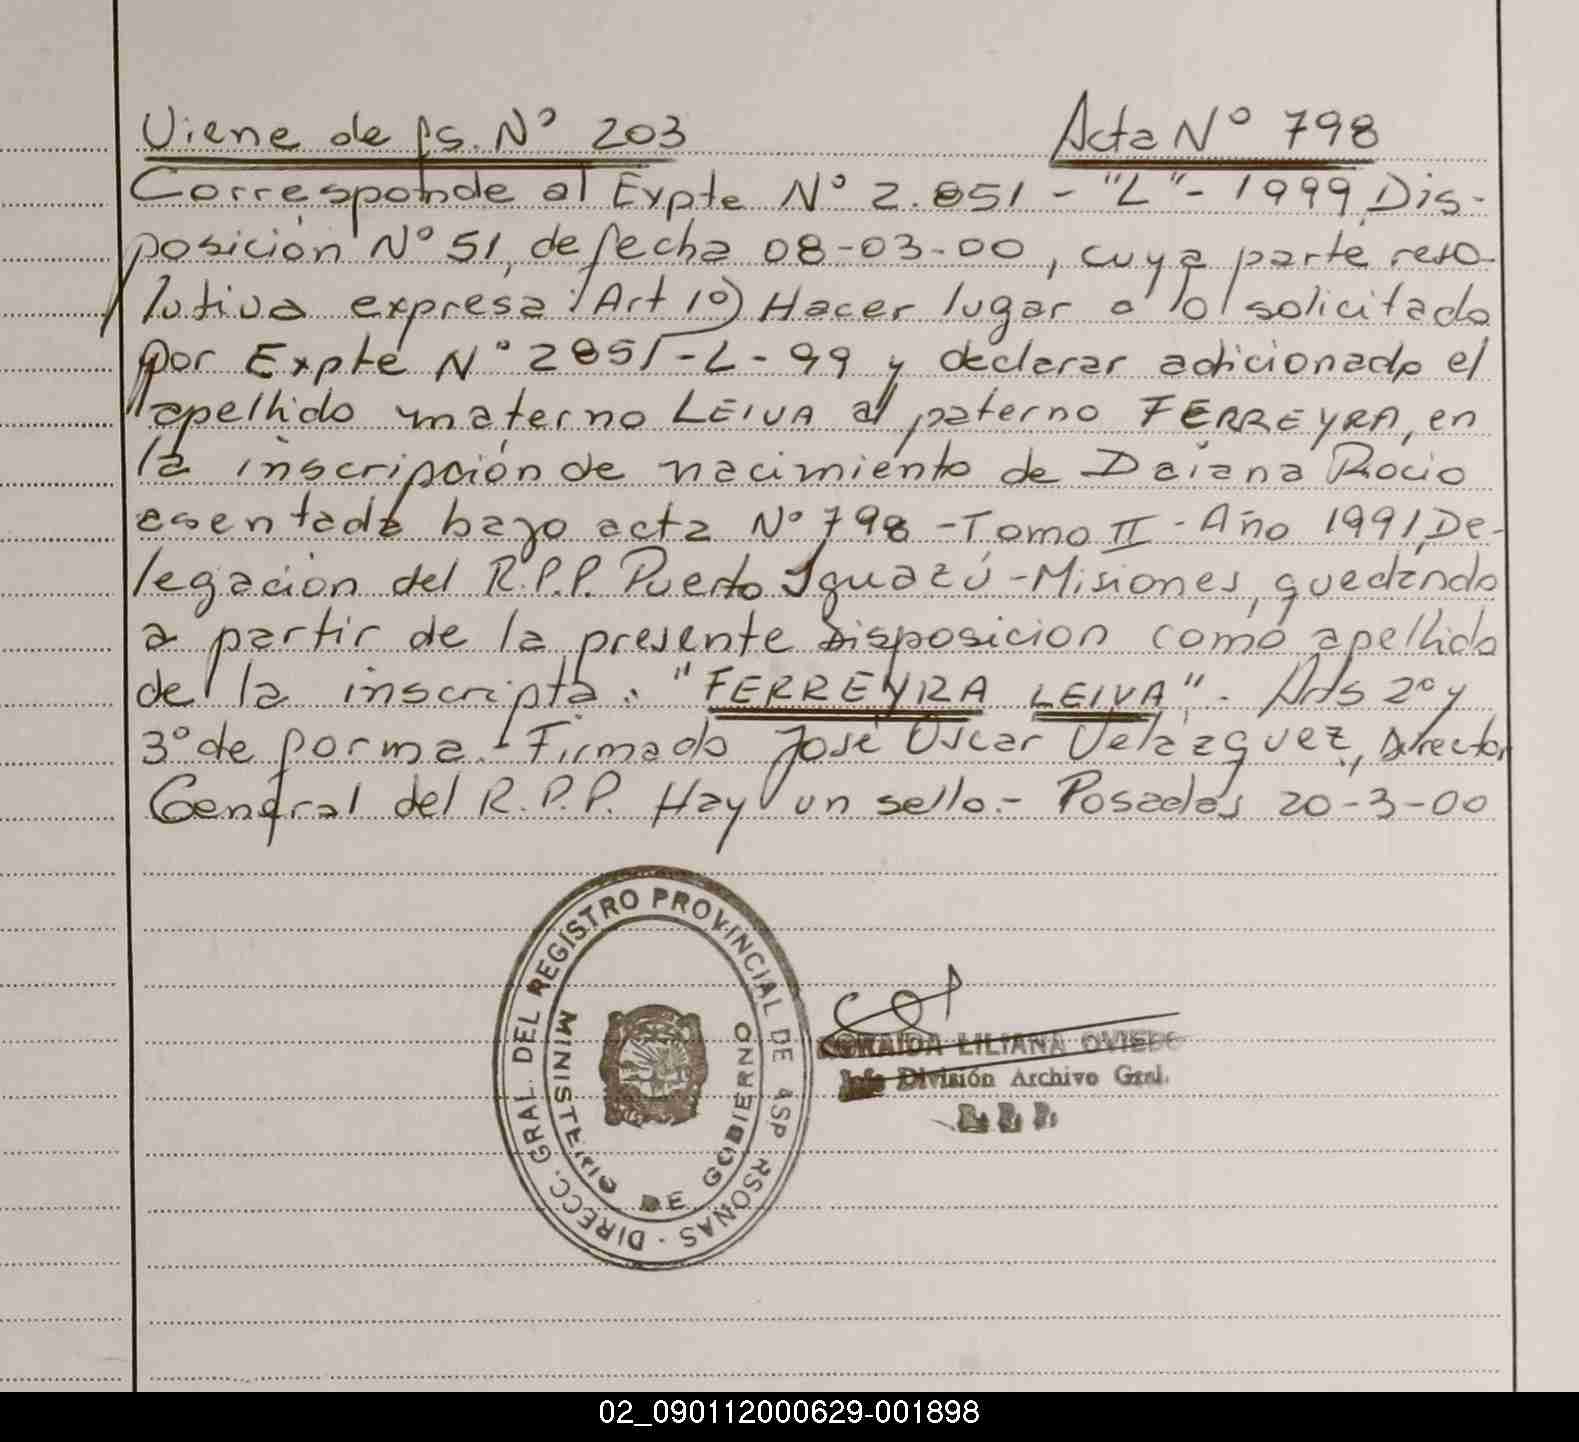 Viene de fs. Nº 203 Acta Nº 798
Corresponde al Expte Nº 2.851 - "L" - 1999, Dis-
posición Nº 51, de fecha 08-03-00, cuya parte reso-
lutiva expresa: Art 1º) Hacer lugar a lo solicitado
por Expte Nº 2851-L-99 y declarar adicionado el
apellido materno LEIVA al paterno FERREYRA, en
la inscripción de nacimiento de Daiana Rocio
asentada bajo acta Nº 798 - Tomo II - Año 1991, De-
legación del R.P.P. Puerto Iguazú - Misiones, quedando
a partir de la presente disposicion como apellido
de la inscripta: "FERREYRA LEIVA". Arts 2º y
3º de forma. - Firmado José Oscar Velázquez, Director
General del R.P.P. Hay un sello.- Posadas 20-3-00
DIRECC. GRAL. DEL REGISTRO PROVINCIAL DE
RSONAS
MINISTERIO DE GOBIERNO
LILIANA OVIEDO
Jefe División Archivo Gral.
02_090112000629-001898